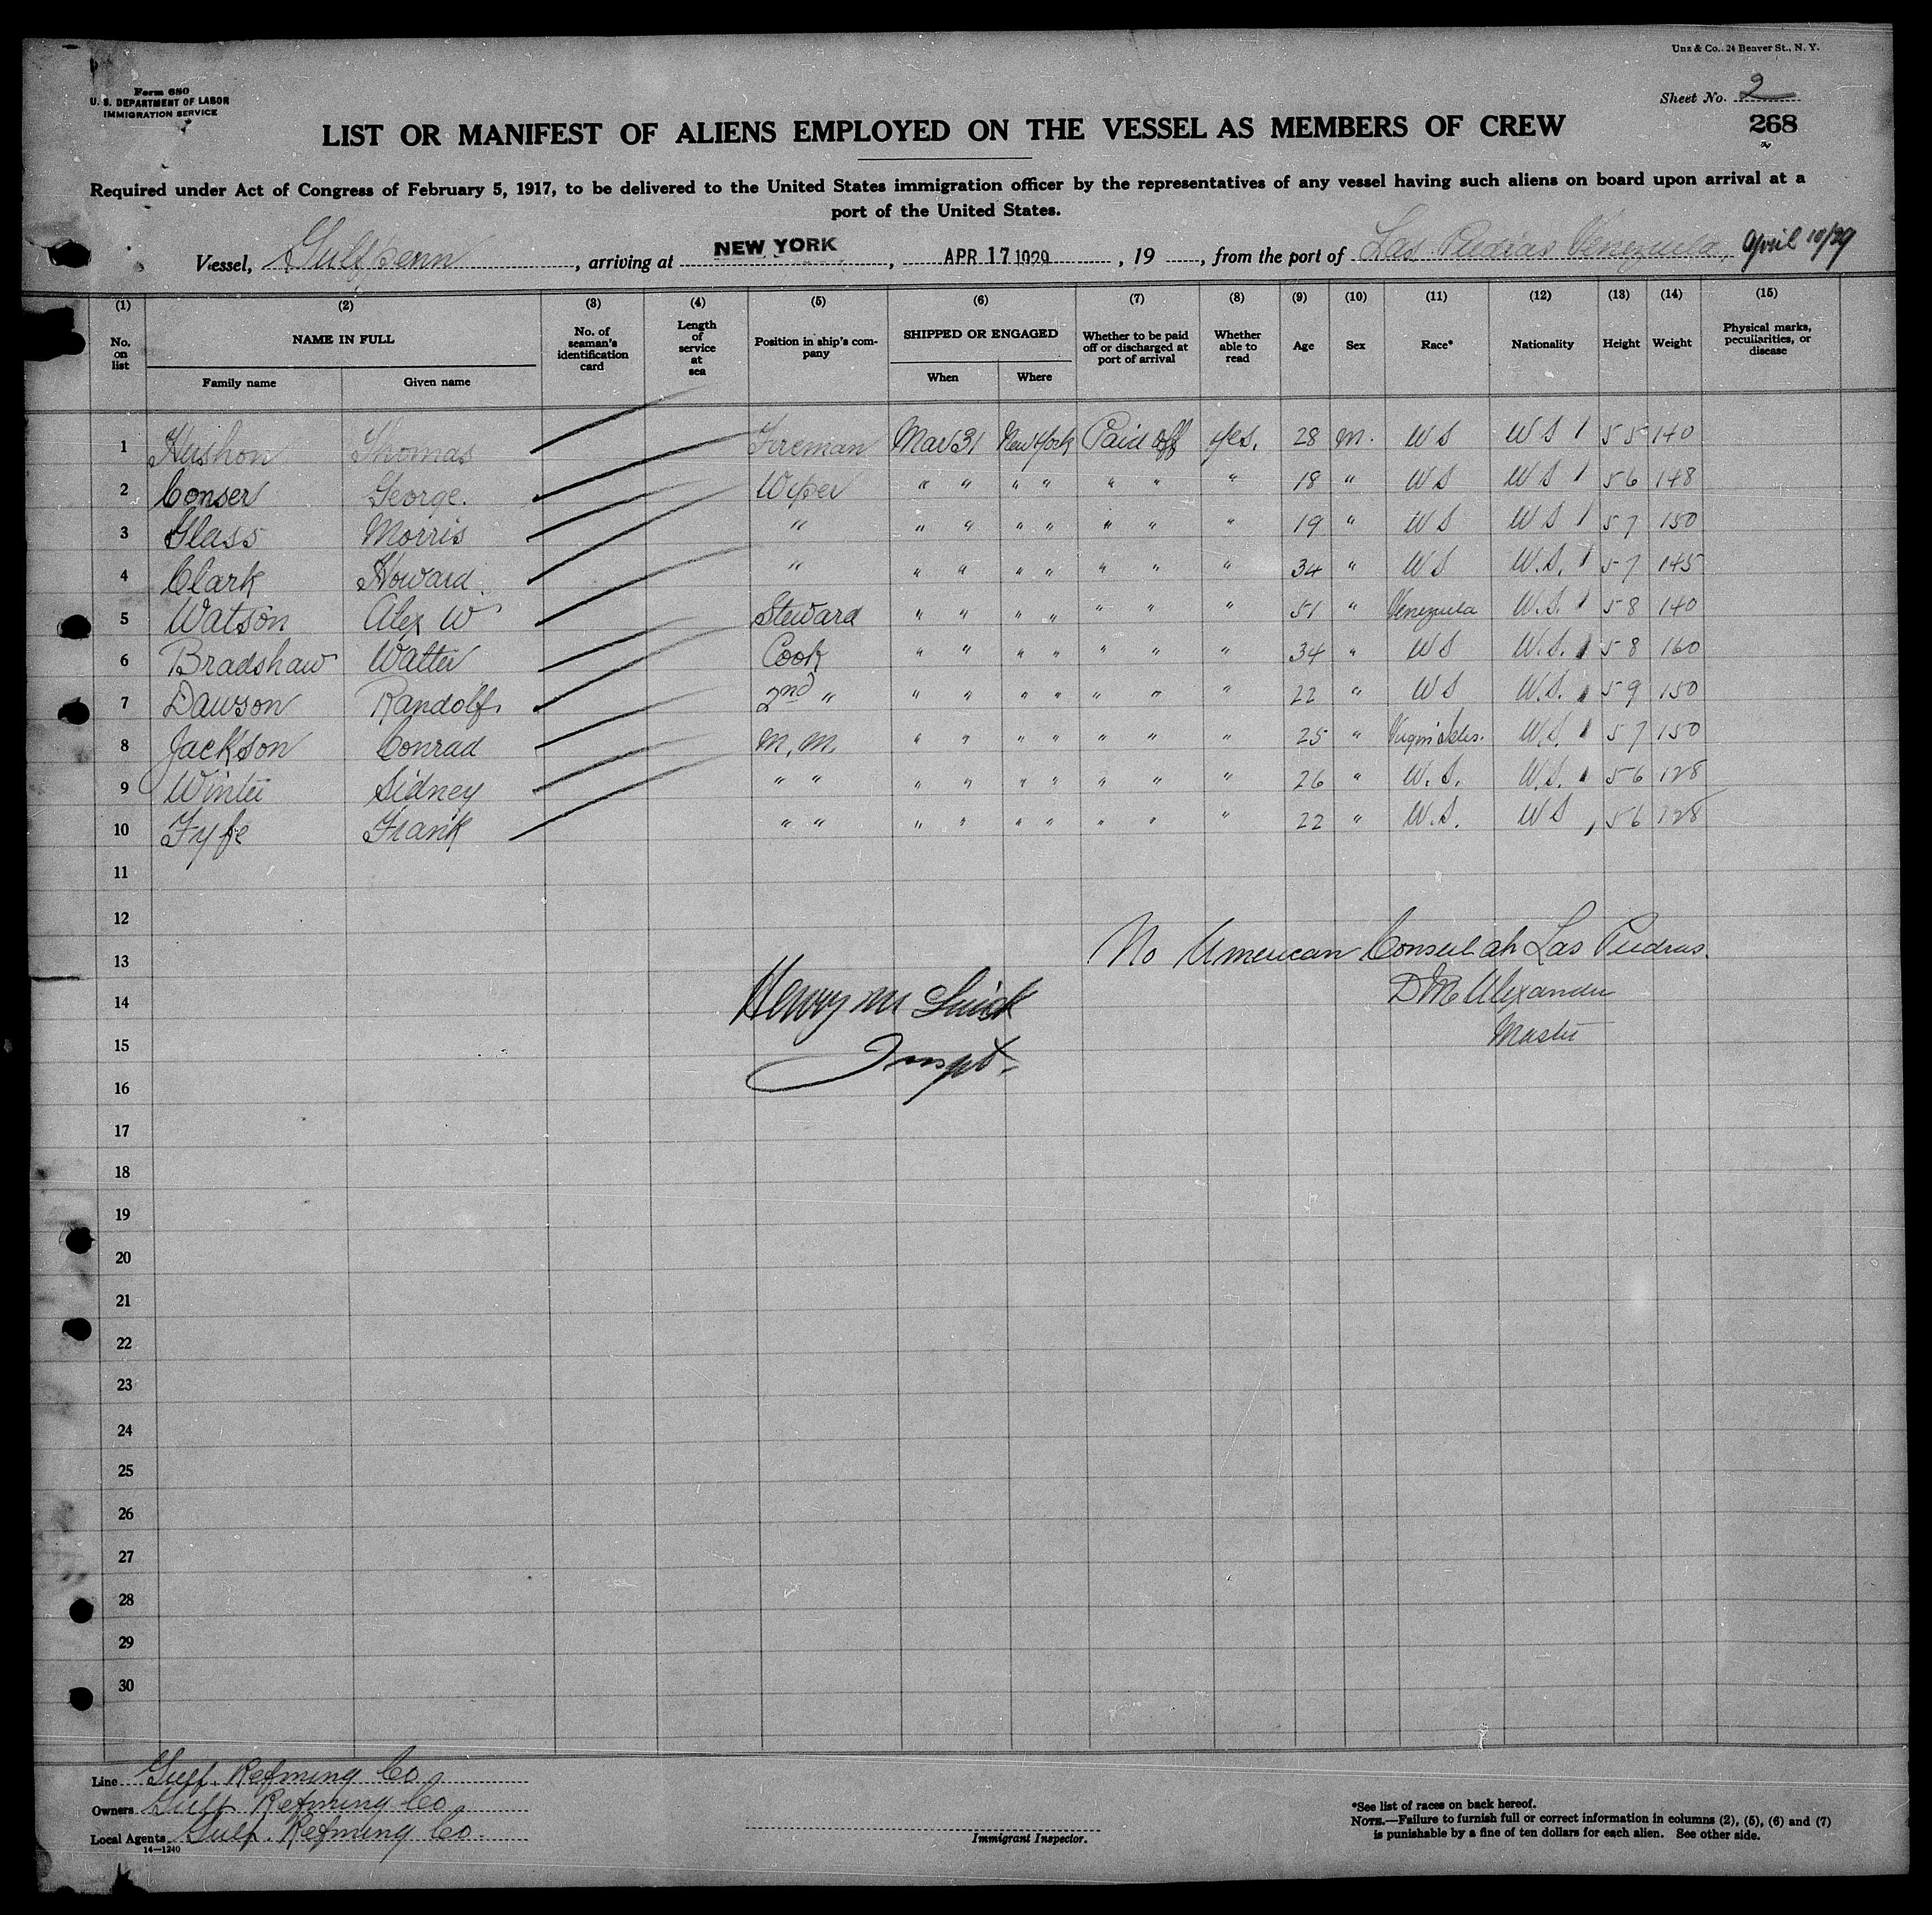 Unz & Co., 24 Beaver St., N. Y.
Form 680
U. S. DEPARTMENT OF LABOR
IMMIGRATION SERVICE
Sheet No. 2
268
LIST OR MANIFEST OF ALIENS EMPLOYED ON THE VESSEL AS MEMBERS OF CREW
Required under Act of Congress of February 5, 1917, to be delivered to the United States immigration officer by the representatives of any vessel having such aliens on board upon arrival at a
port of the United States.
Vessel, Gulfpenn, arriving at NEW YORK, APR 17 1929, 19, from the port of Las Piedras Venezuela, April 10/29
(1) (2) (3) (4) (5) (6) (7) (8) (9) (10) (11) (12) (13) (14) (15)
No. on list NAME IN FULL Family name Given name No. of seaman's identification card Length of service at sea Position in ship's company SHIPPED OR ENGAGED When Where Whether to be paid off or discharged at port of arrival Whether able to read Age Sex Race* Nationality Height Weight Physical marks, peculiarities, or disease
1 Hushon Thomas Fireman Mar 31 New York Paid off yes. 28 M. US US 5 5 140
2 Conser George. Wiper " " " " " " " 18 " US US 5 6 148
3 Glass Morris " " " " " " " " 19 " US US 5 7 150
4 Clark Howard. " " " " " " " " 34 " US U.S. 5 7 145
5 Watson Alex W Steward " " " " " " " 51 " Venezuela U.S. 5 8 140
6 Bradshaw Walter Cook " " " " " " " 34 " US U.S. 5 8 160
7 Dawson Randolf. 2nd " " " " " " " " 22 " US U.S. 5 9 150
8 Jackson Conrad M. M. " " " " " " " 25 " Virgin Isles. U.S. 5 7 150
9 Winter Sidney " " " " " " " " " 26 " U.S. U.S. 5 6 128
10 Fyfe Frank " " " " " " " " " 22 " U.S. US 5 6 128
11
12
No American Consul at Las Piedras.
13
Henry M
D M Alexander
14
Master
15
Inspt.
16
17
18
19
20
21
22
23
24
25
26
27
28
29
30
Line Gulf. Refining Co
Owners Gulf Refining Co
Local Agents Gulf. Refining Co.
14—1240
Immigrant Inspector.
*See list of races on back hereof.
NOTE.—Failure to furnish full or correct information in columns (2), (5), (6) and (7)
is punishable by a fine of ten dollars for each alien. See other side.